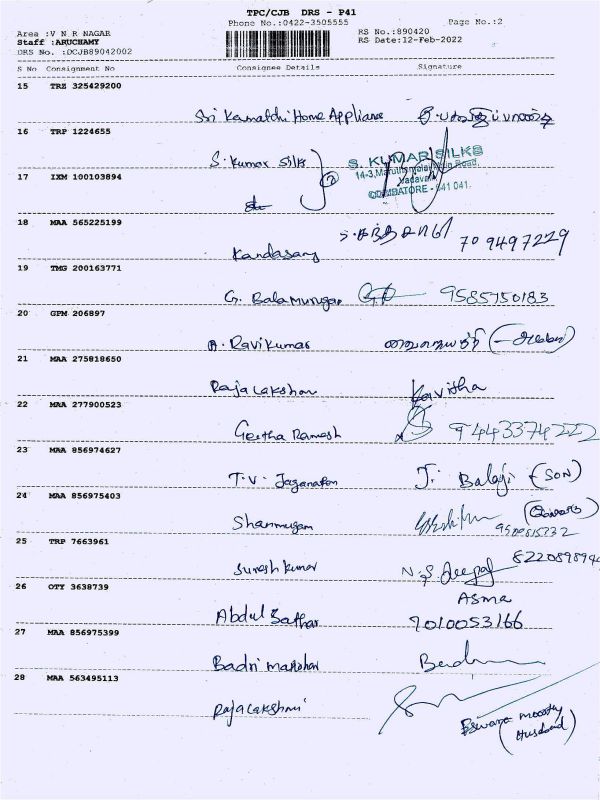 TPC/CJB DRS - P41
Phone No.:0422-3505555
Page No.:2
Area :V N R NAGAR
RS No.:890420
Staff :ARUCHAMY
RS Date:12-Feb-2022
DRS No. :DCJB89042002
S No Consignment No Consignee Details Signature
15 TRZ 325429200
Sri Kamatchi Home Appliance
16 TRP 1224655
S. Kumar Silks
S. KUMAR SILKS
17 IXM 100103894
COIMBATORE - 641 041.
18 MAA 565225199
Kandasamy 709497229
19 TMG 200163771
G. Balamurugan 9585750183
20 GPM 206897
A. Ravikumar
21 MAA 275818650
Rajalakshmi Kavitha
22 MAA 277900523
Geetha Ramesh 9443374222
23 MAA 856974627
T.V. Jaganathan T. Balaji (SON)
24 MAA 856975403
Shanmugam
25 TRP 7663961
Suresh kumar N.S Deepa
26 OTY 3638739
Asma
Abdul Sathar 9010053166
27 MAA 856975399
Badri manohar
28 MAA 563495113
Rajalakshmi
Eswara moorthy
(Husband)